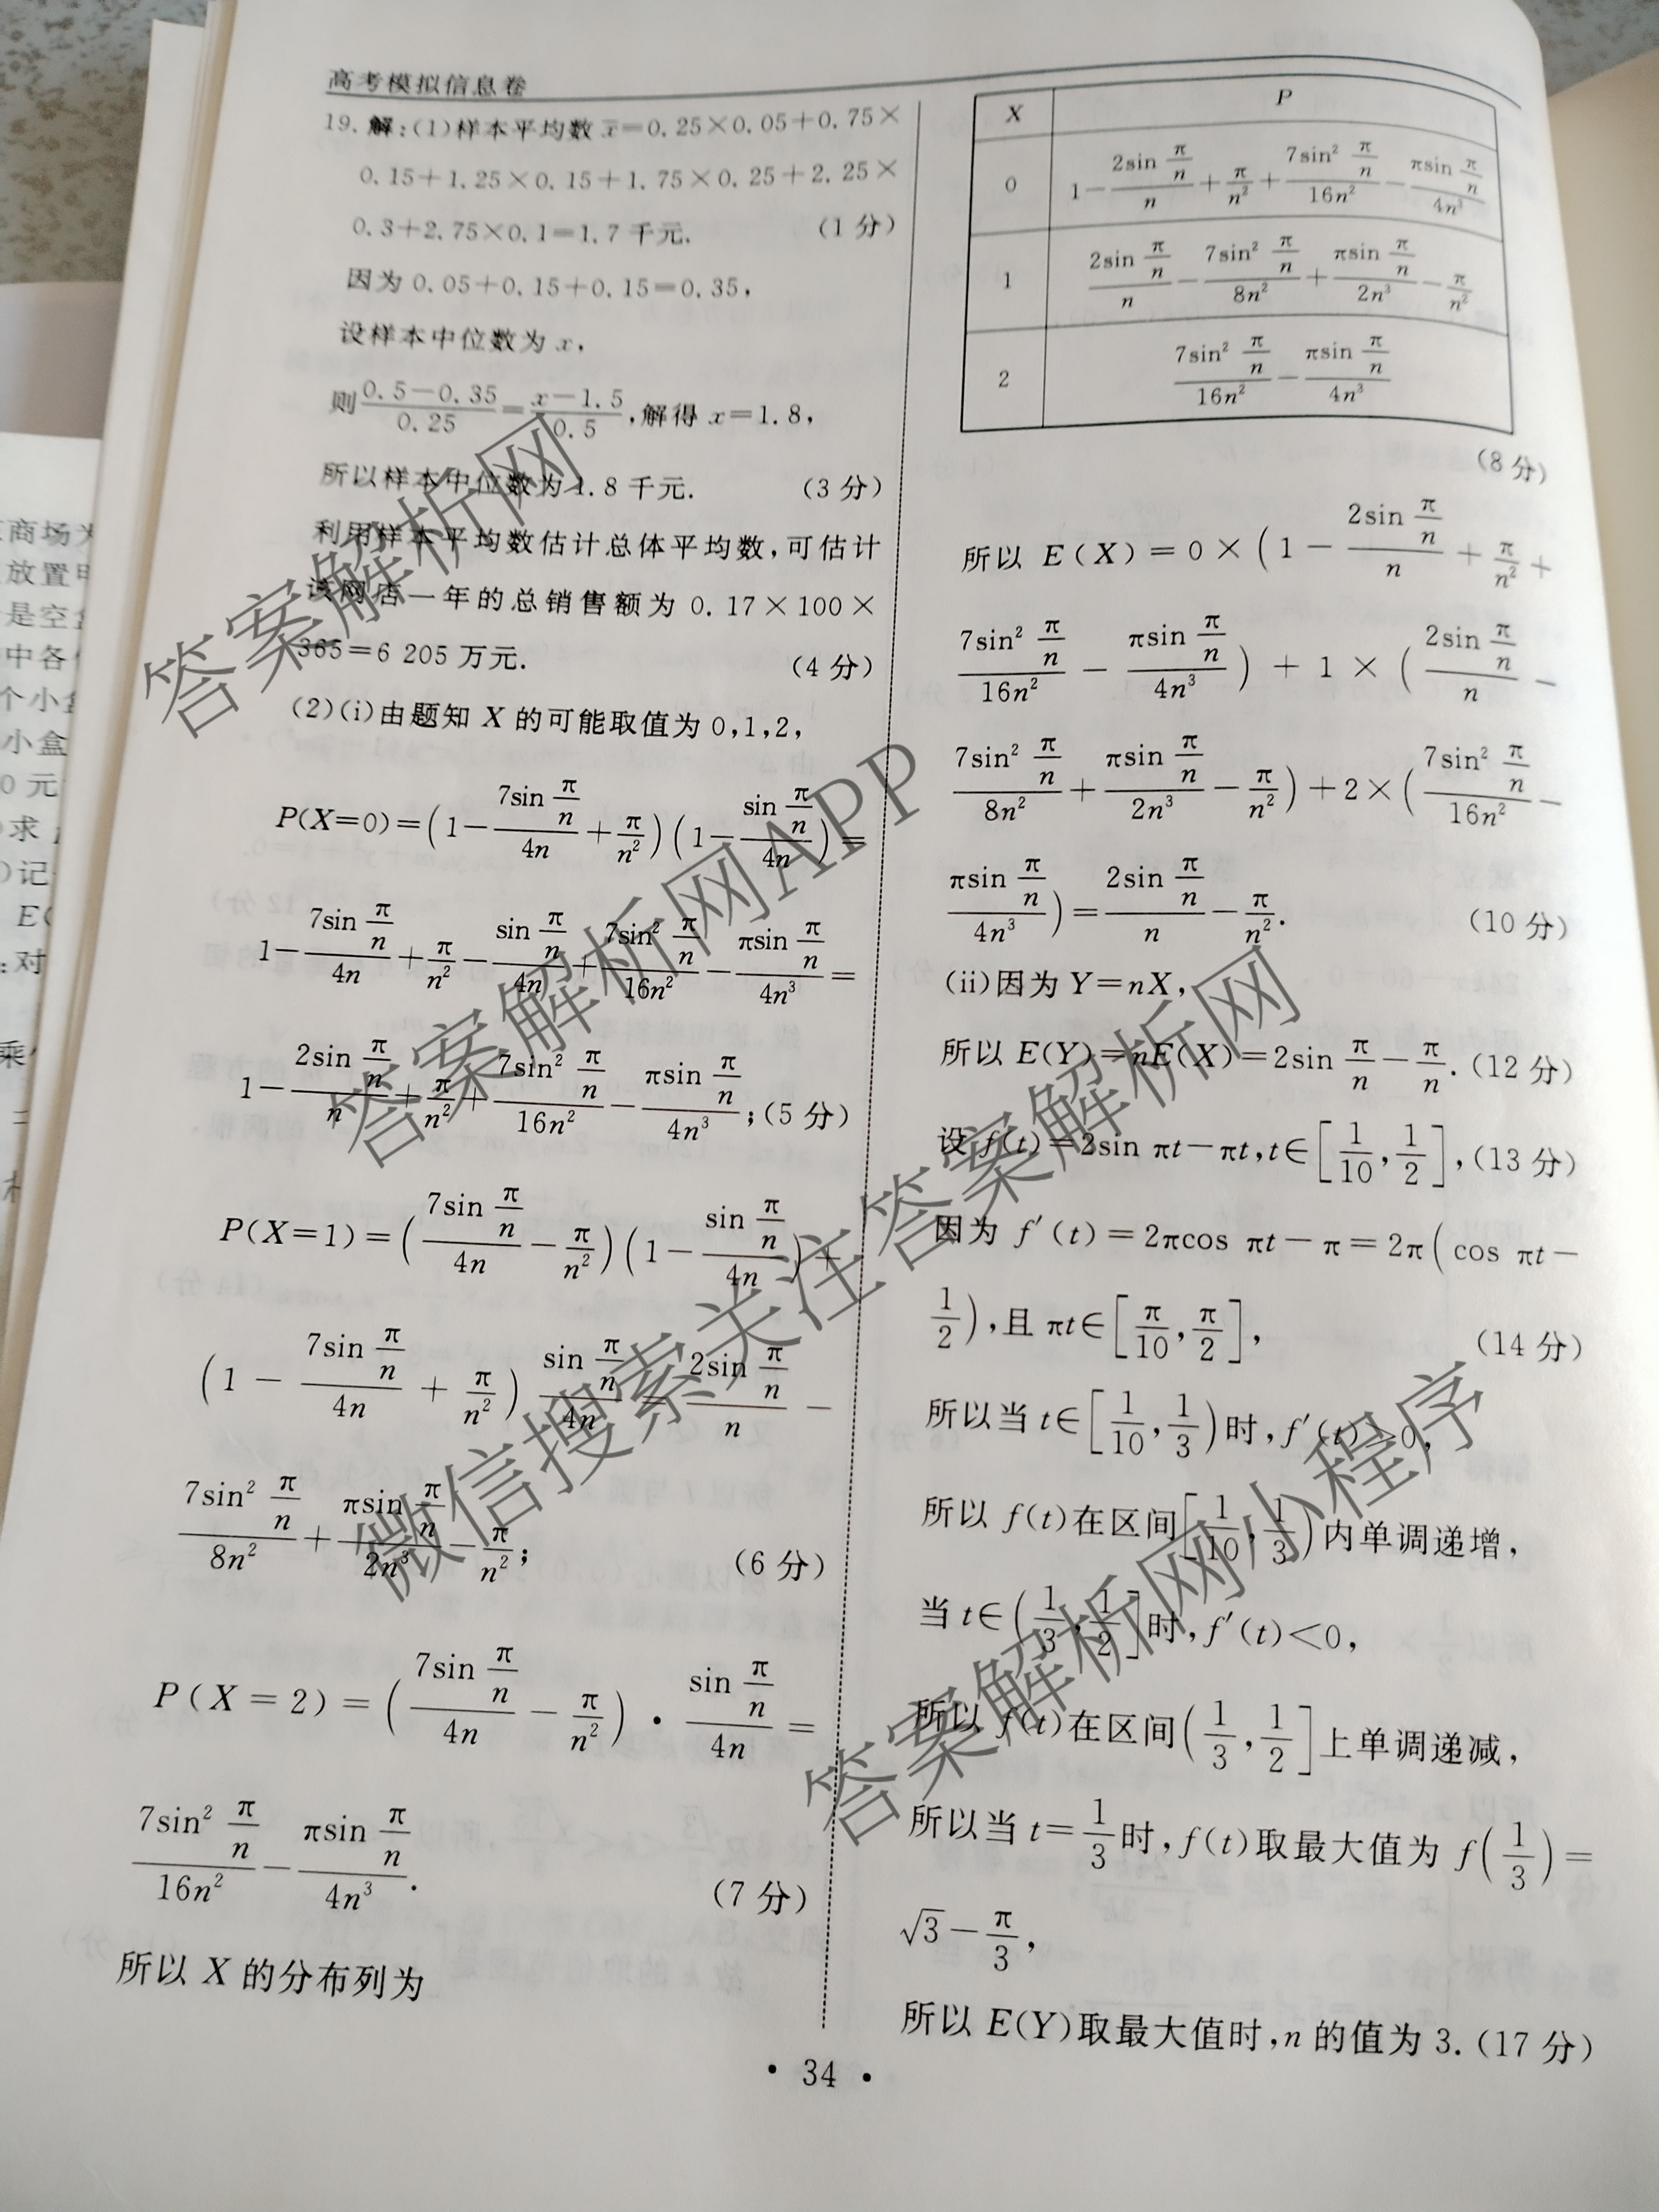 高考模拟信息卷
19. 解:(1)样本平均数 x̄=0.25×0.05+0.75×
0.15+1.25×0.15+1.75×0.25+2.25×
0.3+2.75×0.1=1.7千元. (1分)
因为 0.05+0.15+0.15=0.35,
设样本中位数为 x,
则 (0.5-0.35)/0.25=(x-1.5)/0.5,解得 x=1.8,
所以样本中位数为1.8千元. (3分)
利用样本平均数估计总体平均数,可估计
该网店一年的总销售额为 0.17×100×
365=6 205万元. (4分)
(2)(i)由题知 X 的可能取值为 0,1,2,
P(X=0)=(1-(7sin π/n)/(4n)+π/n²)(1-(sin π/n)/(4n))=
1-(7sin π/n)/(4n)+π/n²-(sin π/n)/(4n)+(7sin² π/n)/(16n²)-(πsin π/n)/(4n³)=
1-(2sin π/n)/n+π/n²+(7sin² π/n)/(16n²)-(πsin π/n)/(4n³);(5分)
P(X=1)=((7sin π/n)/(4n)-π/n²)(1-(sin π/n)/(4n))+
(1-(7sin π/n)/(4n)+π/n²)(sin π/n)/(4n)=(2sin π/n)/n-
(7sin² π/n)/(8n²)+(πsin π/n)/(2n³)-π/n²; (6分)
P(X=2)=((7sin π/n)/(4n)-π/n²)·(sin π/n)/(4n)=
(7sin² π/n)/(16n²)-(πsin π/n)/(4n³). (7分)
所以 X 的分布列为
X P
0 1-(2sin π/n)/n+π/n²+(7sin² π/n)/(16n²)-(πsin π/n)/(4n³)
1 (2sin π/n)/n-(7sin² π/n)/(8n²)+(πsin π/n)/(2n³)-π/n²
2 (7sin² π/n)/(16n²)-(πsin π/n)/(4n³)
(8分)
所以 E(X)=0×(1-(2sin π/n)/n+π/n²+
(7sin² π/n)/(16n²)-(πsin π/n)/(4n³))+1×((2sin π/n)/n-
(7sin² π/n)/(8n²)+(πsin π/n)/(2n³)-π/n²)+2×((7sin² π/n)/(16n²)-
(πsin π/n)/(4n³))=(2sin π/n)/n-π/n². (10分)
(ii)因为 Y=nX,
所以 E(Y)=nE(X)=2sin π/n-π/n.(12分)
设 f(t)=2sin πt-πt,t∈[1/10,1/2],(13分)
因为 f′(t)=2πcos πt-π=2π(cos πt-
1/2),且 πt∈[π/10,π/2], (14分)
所以当 t∈[1/10,1/3)时,f′(t)>0,
所以 f(t)在区间[1/10,1/3)内单调递增,
当 t∈(1/3,1/2]时,f′(t)<0,
所以 f(t)在区间(1/3,1/2]上单调递减,
所以当 t=1/3时,f(t)取最大值为 f(1/3)=
√3-π/3,
所以 E(Y)取最大值时,n 的值为 3.(17分)
· 34 ·
商场为
放置甲
是空盒
中各
个小盒
小盒
0元
求
)记
E(
:对
乘
答案解析网
答案解析网APP
微信搜索关注答案解析网
答案解析网小程序